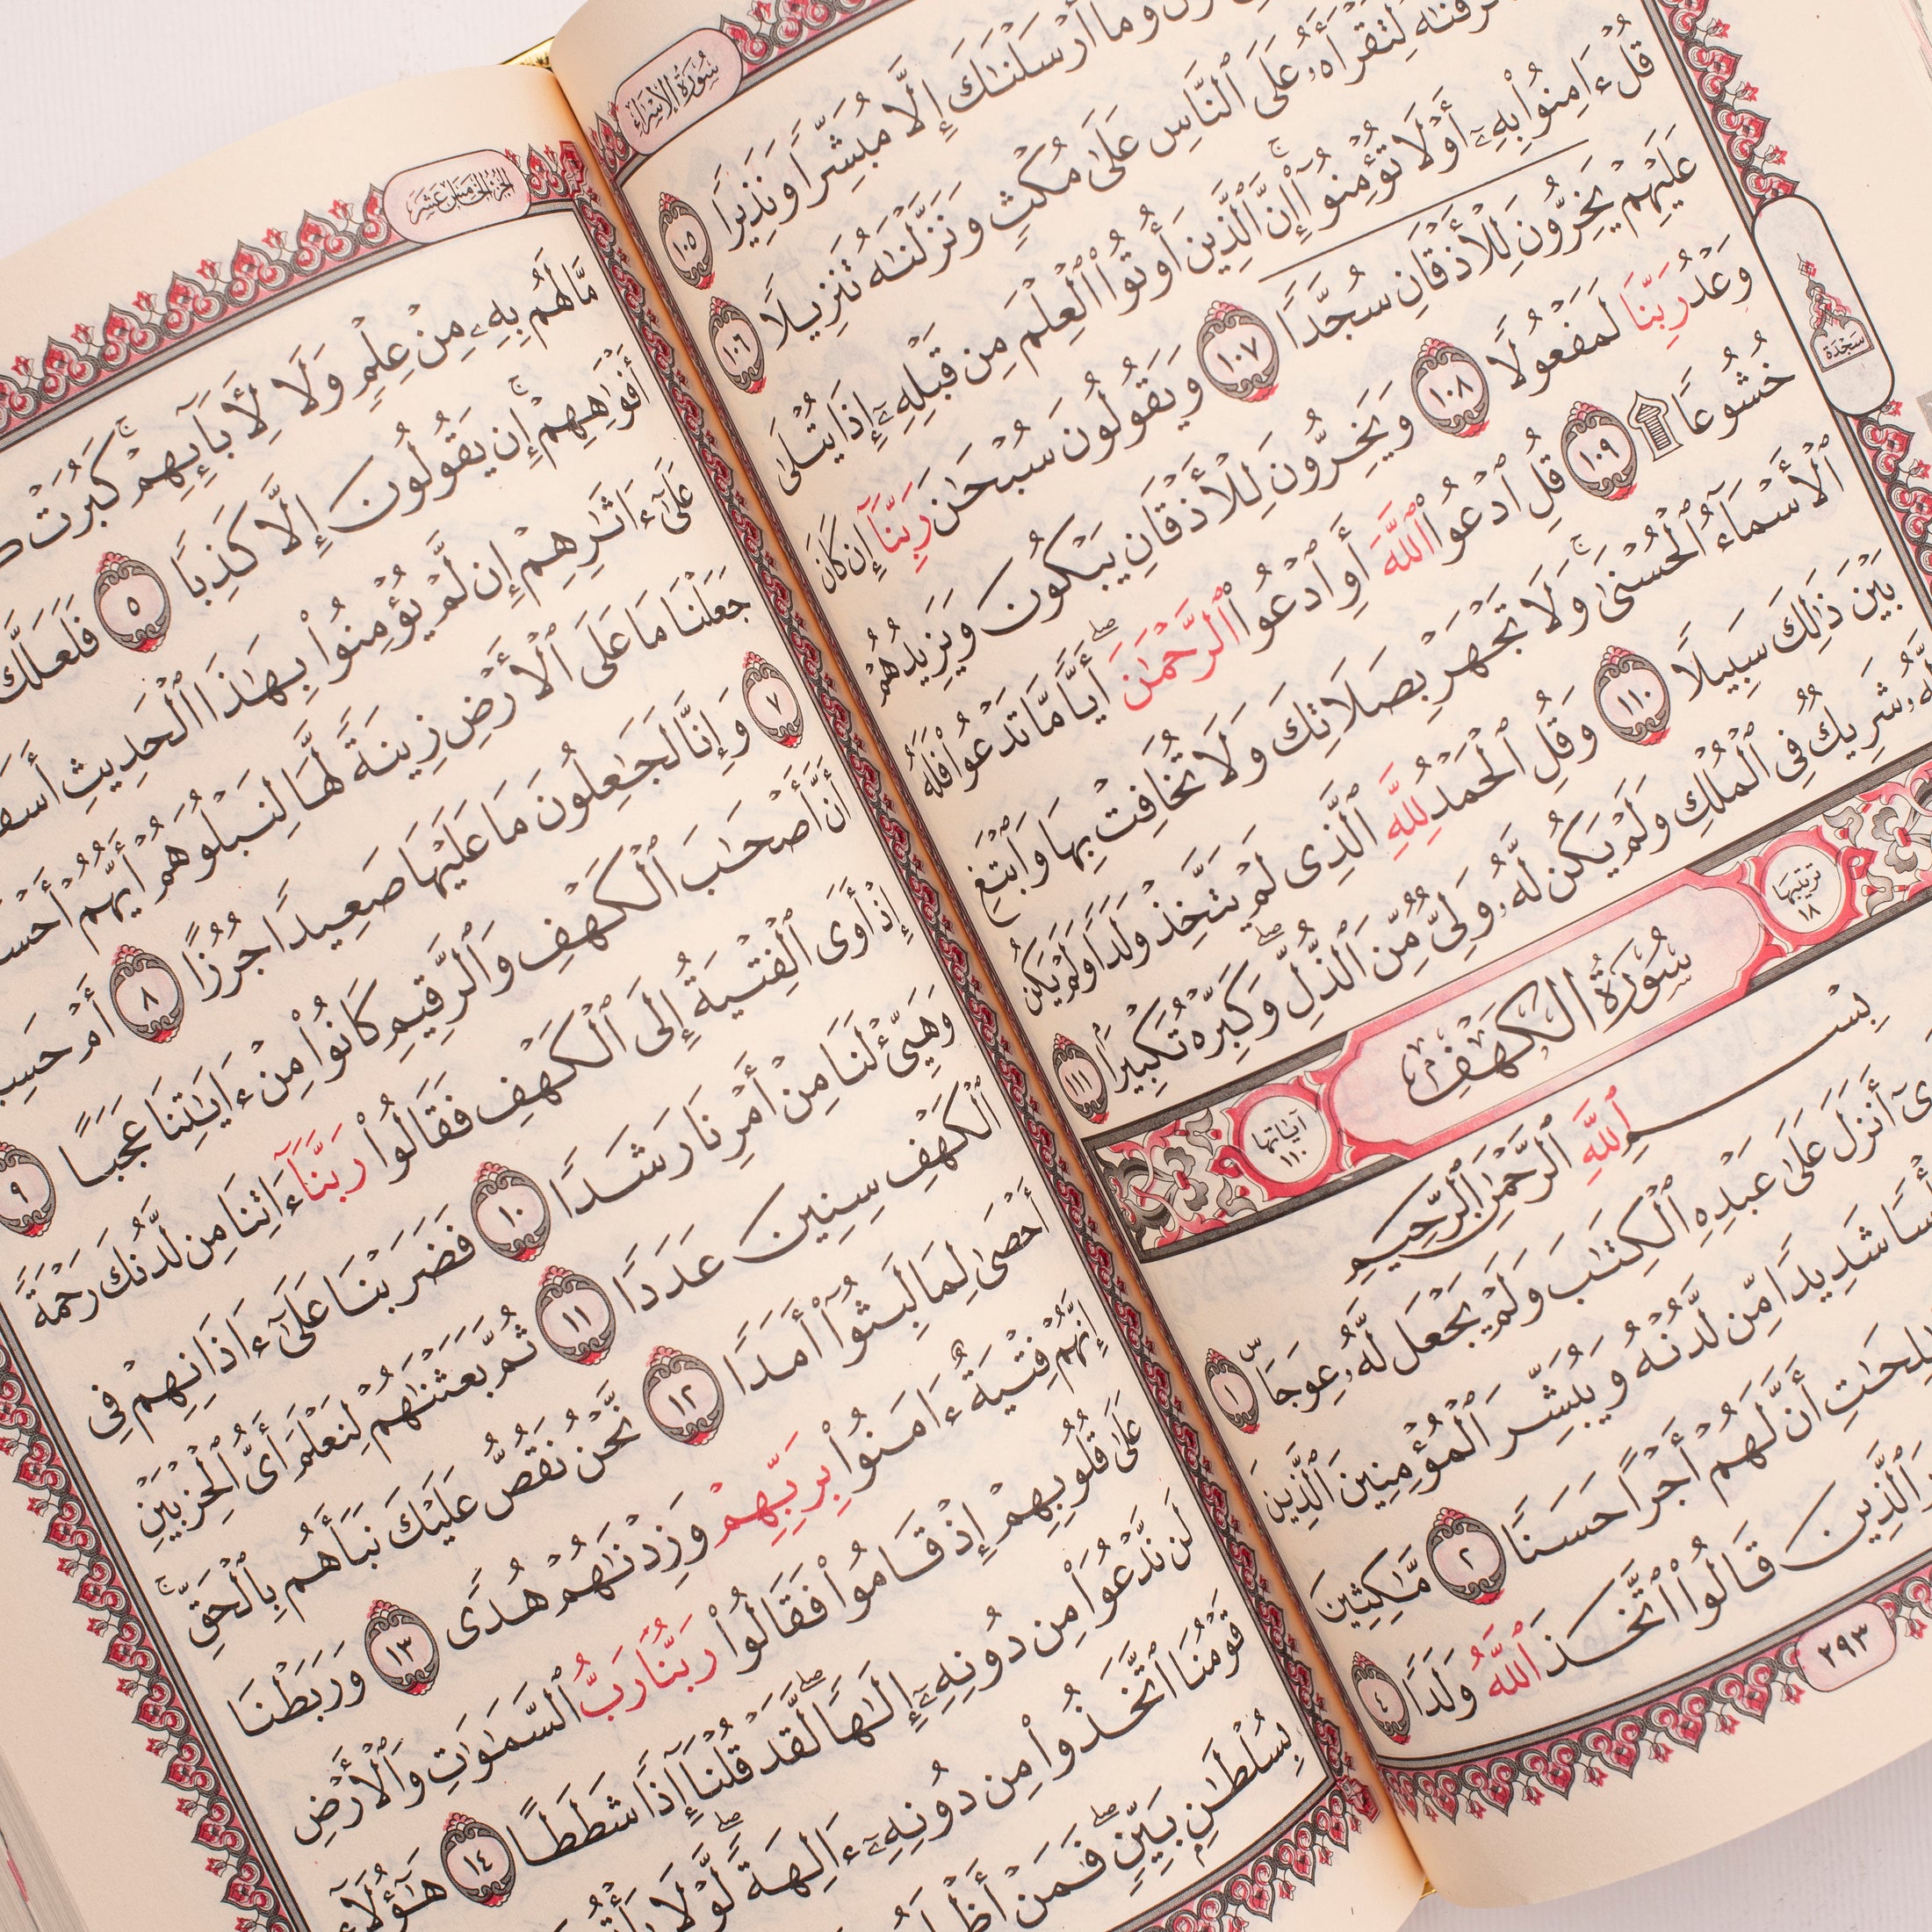 سُورَةُ الإِسْرَاءِ
وَمَا أَرْسَلْنَٰكَ إِلَّا مُبَشِّرًا وَنَذِيرًا ١٠٥
لِتَقْرَأَهُۥ عَلَى ٱلنَّاسِ عَلَىٰ مُكْثٍ وَنَزَّلْنَٰهُ تَنزِيلًا ١٠٦
قُلْ ءَامِنُوا۟ بِهِۦٓ أَوْ لَا تُؤْمِنُوٓا۟ ۚ إِنَّ ٱلَّذِينَ أُوتُوا۟ ٱلْعِلْمَ مِن قَبْلِهِۦٓ إِذَا يُتْلَىٰ
عَلَيْهِمْ يَخِرُّونَ لِلْأَذْقَانِ سُجَّدًا ١٠٧ وَيَقُولُونَ سُبْحَٰنَ رَبِّنَآ إِن كَانَ
وَعْدُ رَبِّنَا لَمَفْعُولًا ١٠٨ وَيَخِرُّونَ لِلْأَذْقَانِ يَبْكُونَ وَيَزِيدُهُمْ
خُشُوعًا ۩ ١٠٩ قُلِ ٱدْعُوا۟ ٱللَّهَ أَوِ ٱدْعُوا۟ ٱلرَّحْمَٰنَ ۖ أَيًّا مَّا تَدْعُوا۟ فَلَهُ
ٱلْأَسْمَآءُ ٱلْحُسْنَىٰ ۚ وَلَا تَجْهَرْ بِصَلَاتِكَ وَلَا تُخَافِتْ بِهَا وَٱبْتَغِ
بَيْنَ ذَٰلِكَ سَبِيلًا ١١٠ وَقُلِ ٱلْحَمْدُ لِلَّهِ ٱلَّذِى لَمْ يَتَّخِذْ وَلَدًا وَلَمْ يَكُن
لَّهُۥ شَرِيكٌ فِى ٱلْمُلْكِ وَلَمْ يَكُن لَّهُۥ وَلِىٌّ مِّنَ ٱلذُّلِّ ۖ وَكَبِّرْهُ تَكْبِيرًۢا ١١١
سَجْدَة
ترتيبها ١٨
سُورَةُ الكَهْفِ
آياتها ١١٠
بِسْمِ ٱللَّهِ ٱلرَّحْمَٰنِ ٱلرَّحِيمِ
أَنزَلَ عَلَىٰ عَبْدِهِ ٱلْكِتَٰبَ وَلَمْ يَجْعَل لَّهُۥ عِوَجَاۜ ١
شَدِيدًا مِّن لَّدُنْهُ وَيُبَشِّرَ ٱلْمُؤْمِنِينَ ٱلَّذِينَ
أَنَّ لَهُمْ أَجْرًا حَسَنًا ٢ مَّٰكِثِينَ
ٱلَّذِينَ قَالُوا۟ ٱتَّخَذَ ٱللَّهُ وَلَدًا ٤
٢٩٣
الجزء الخامس عشر
مَّا لَهُم بِهِۦ مِنْ عِلْمٍ وَلَا لِءَابَآئِهِمْ ۚ كَبُرَتْ
أَفْوَٰهِهِمْ ۚ إِن يَقُولُونَ إِلَّا كَذِبًا ٥ فَلَعَلَّكَ
عَلَىٰٓ ءَاثَٰرِهِمْ إِن لَّمْ يُؤْمِنُوا۟ بِهَٰذَا ٱلْحَدِيثِ
جَعَلْنَا مَا عَلَى ٱلْأَرْضِ زِينَةً لَّهَا لِنَبْلُوَهُمْ أَيُّهُمْ
٧ وَإِنَّا لَجَٰعِلُونَ مَا عَلَيْهَا صَعِيدًا جُرُزًا ٨ أَمْ
أَنَّ أَصْحَٰبَ ٱلْكَهْفِ وَٱلرَّقِيمِ كَانُوا۟ مِنْ ءَايَٰتِنَا عَجَبًا ٩
إِذْ أَوَى ٱلْفِتْيَةُ إِلَى ٱلْكَهْفِ فَقَالُوا۟ رَبَّنَآ ءَاتِنَا مِن لَّدُنكَ رَحْمَةً
وَهَيِّئْ لَنَا مِنْ أَمْرِنَا رَشَدًا ١٠ فَضَرَبْنَا عَلَىٰٓ ءَاذَانِهِمْ فِى
ٱلْكَهْفِ سِنِينَ عَدَدًا ١١ ثُمَّ بَعَثْنَٰهُمْ لِنَعْلَمَ أَىُّ ٱلْحِزْبَيْنِ
أَحْصَىٰ لِمَا لَبِثُوٓا۟ أَمَدًا ١٢ نَّحْنُ نَقُصُّ عَلَيْكَ نَبَأَهُم بِٱلْحَقِّ ۚ
إِنَّهُمْ فِتْيَةٌ ءَامَنُوا۟ بِرَبِّهِمْ وَزِدْنَٰهُمْ هُدًى ١٣ وَرَبَطْنَا
عَلَىٰ قُلُوبِهِمْ إِذْ قَامُوا۟ فَقَالُوا۟ رَبُّنَا رَبُّ ٱلسَّمَٰوَٰتِ وَٱلْأَرْضِ
لَن نَّدْعُوَا۟ مِن دُونِهِۦٓ إِلَٰهًا ۖ لَّقَدْ قُلْنَآ إِذًا شَطَطًا ١٤ هَٰٓؤُلَآءِ
قَوْمُنَا ٱتَّخَذُوا۟ مِن دُونِهِۦٓ ءَالِهَةً ۖ لَّوْلَا
بِسُلْطَٰنٍۭ بَيِّنٍ ۖ فَمَنْ